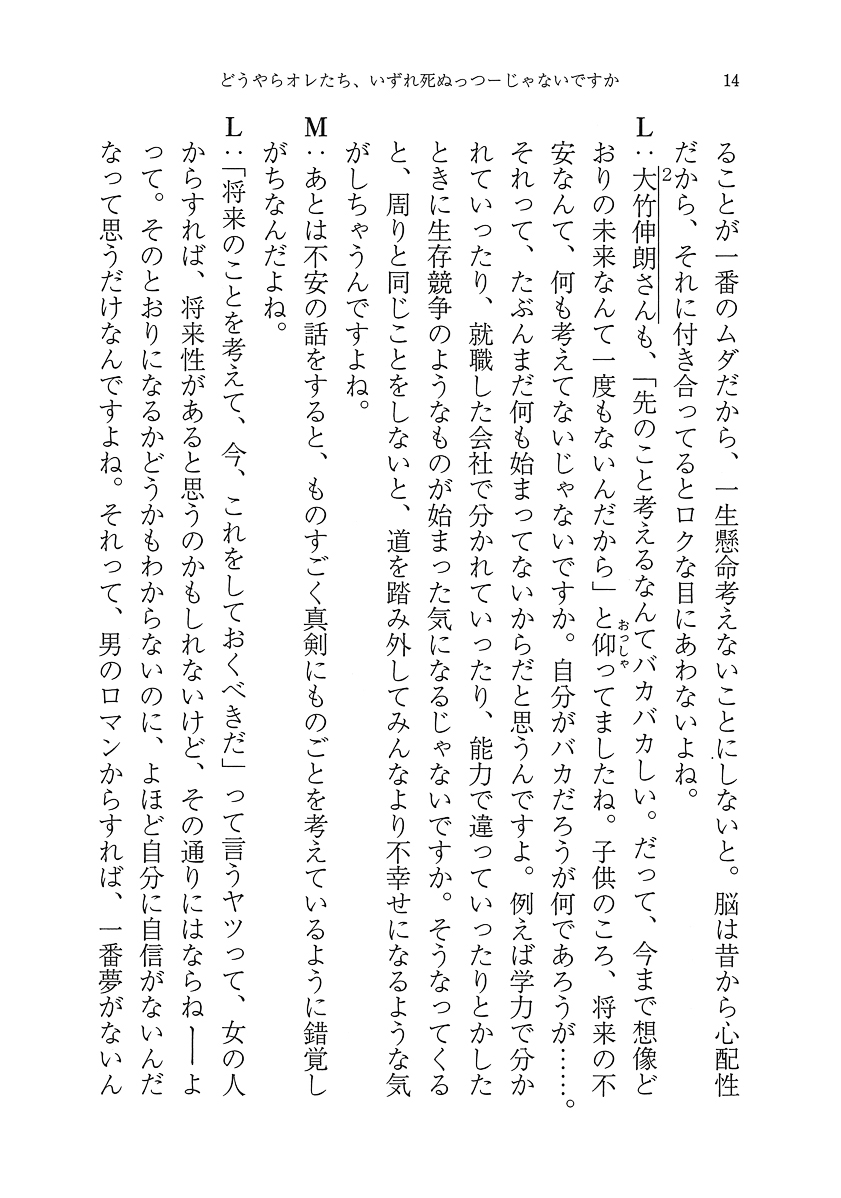 どうやらオレたち、いずれ死ぬっつーじゃないですか
14
ることが一番のムダだから、一生懸命考えないことにしないと。脳は昔から心配性
だから、それに付き合ってるとロクな目にあわないよね。
L：大竹伸朗さん2も、「先のこと考えるなんてバカバカしい。だって、今まで想像ど
おりの未来なんて一度もないんだから」と仰おっしゃってましたね。子供のころ、将来の不
安なんて、何も考えてないじゃないですか。自分がバカだろうが何であろうが……。
それって、たぶんまだ何も始まってないからだと思うんですよ。例えば学力で分か
れていったり、就職した会社で分かれていったり、能力で違っていったりとかした
ときに生存競争のようなものが始まった気になるじゃないですか。そうなってくる
と、周りと同じことをしないと、道を踏み外してみんなより不幸せになるような気
がしちゃうんですよね。
M：あとは不安の話をすると、ものすごく真剣にものごとを考えているように錯覚し
がちなんだよね。
L：「将来のことを考えて、今、これをしておくべきだ」って言うヤツって、女の人
からすれば、将来性があると思うのかもしれないけど、その通りにはならね――よ
って。そのとおりになるかどうかもわからないのに、よほど自分に自信がないんだ
なって思うだけなんですよね。それって、男のロマンからすれば、一番夢がないん